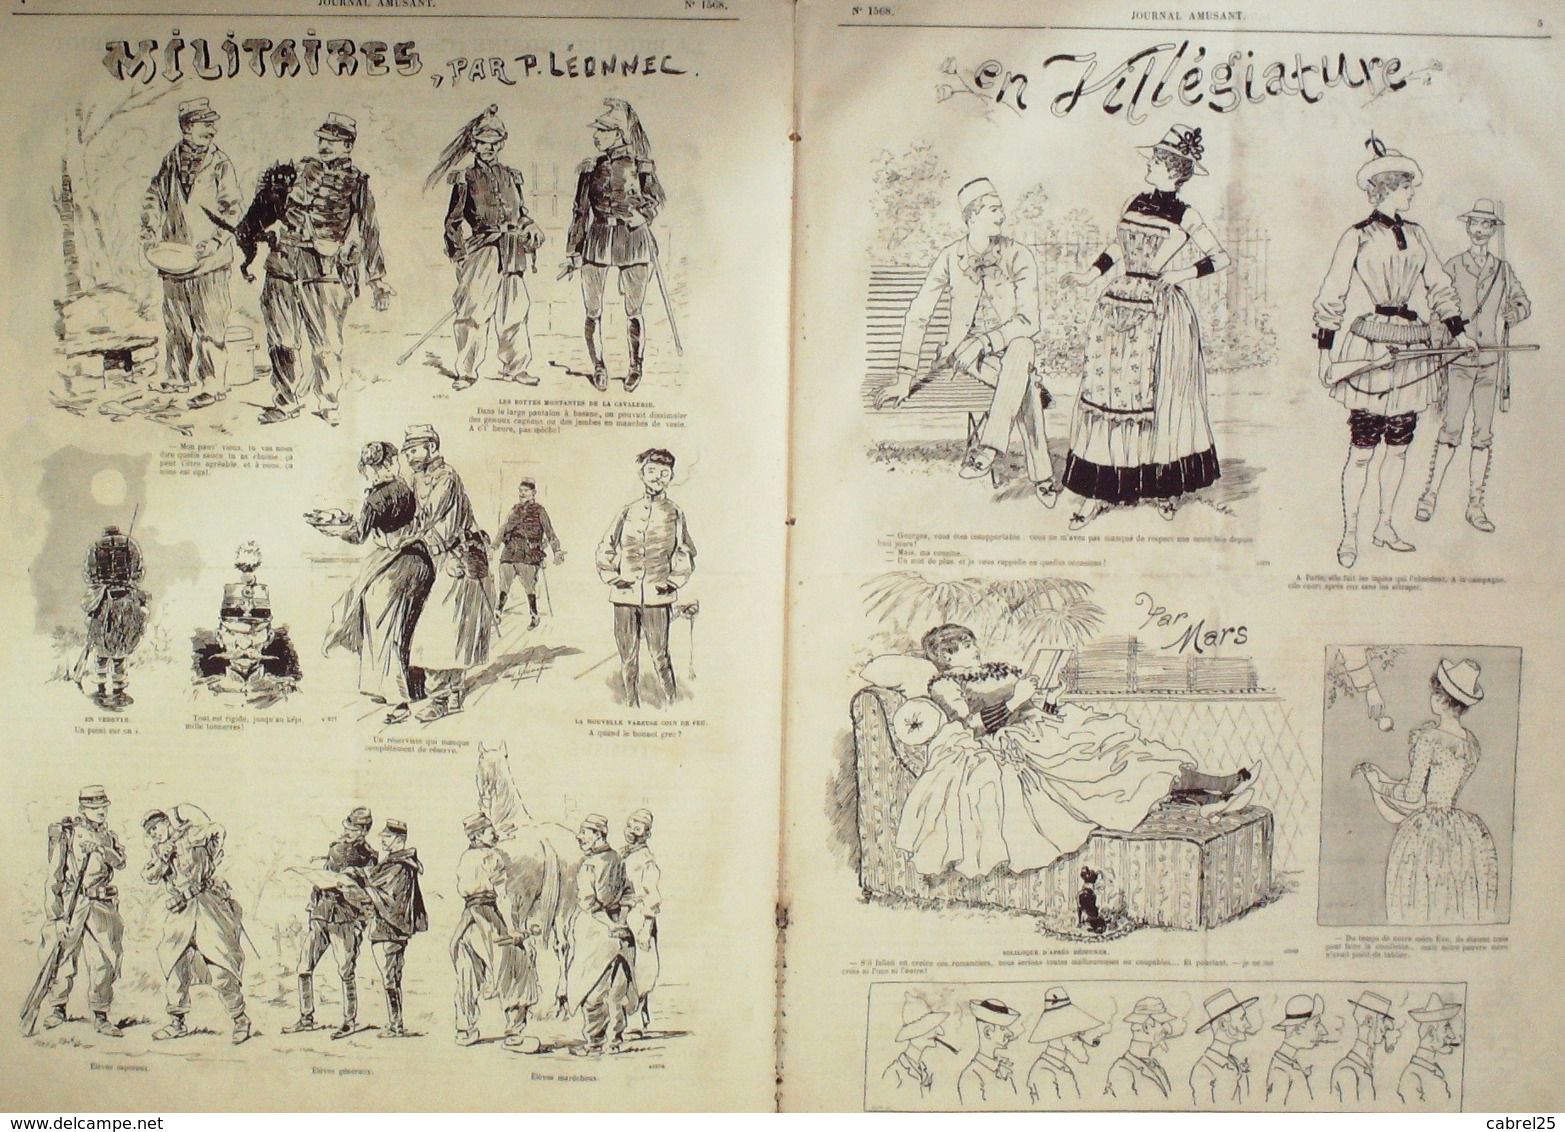 4
JOURNAL AMUSANT.
Nº 1568.
MILITAIRES, PAR P. LÉONNEC.
— Mon pauv' vieux, tu vas nous
dire quelle sauce tu as choisie, ça
peut t'être agréable, et à nous, ça
nous est égal.
LES BOTTES MONTANTES DE LA CAVALERIE.
Dans le large pantalon à basane, on pouvait dissimuler
des genoux cagneux ou des jambes en manches de veste.
A c't' heure, pas mèche!
EN VEDETTE.
Un point sur un i.
Tout est rigide, jusqu'au képi,
mille tonnerres!
Un réserviste qui manque
complètement de réserve.
LA NOUVELLE VAREUSE COIN DE FEU.
A quand le bonnet grec?
Élèves caporaux.
Élèves généraux.
Élèves maréchaux.
Nº 1568.
JOURNAL AMUSANT.
5
en Villégiature
— Georges, vous êtes insupportable: vous ne m'avez pas manqué de respect une seule fois depuis
huit jours!
— Mais, ma cousine...
— Un mot de plus, et je vous rappelle en quelles occasions!
A Paris, elle fait les lapins qui l'obsèdent. A la campagne,
elle court après eux sans les attraper.
Par
Mars
SOLILOQUE D'APRÈS DÉJEUNER.
— S'il fallait en croire ces romanciers, nous serions toutes malheureuses ou coupables... Et pourtant, — je ne me
crois ni l'une ni l'autre!
— Du temps de notre mère Ève, ils étaient trois
pour faire la cueillette... mais notre pauvre mère
n'avait point de tablier.
cabrel25